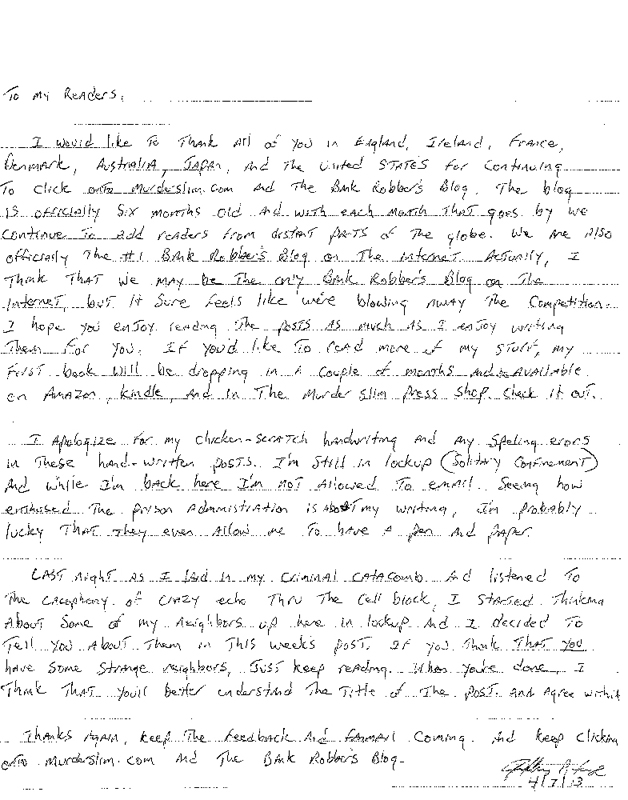 To my Readers,
I would like To Thank All of you in England, Ireland, France,
Denmark, Australia, Japan, And The United States for Continuing
To Click onto Murderslim.com And The Bank Robber's Blog. The blog
is officially Six months old And with each Month That goes by we
Continue To add readers from distant parts of The globe. We Are Also
officially The #1 Bank Robber's Blog on The internet. Actually, I
Think That we may be The only Bank Robber's Blog on The
Internet, but it Sure feels like we're blowing away The Competition.
I hope you enjoy reading The posts As much As I enjoy writing
Them For You. If you'd like To read more of my Stuff, my
First book will be dropping in A Couple of months And be Available
on Amazon, Kindle, And in The Murder Slim Press Shop. Check it out.
I Apologize for my Chicken-Scratch handwriting And Any Speling erors
in These hand-written posts. I'm Still in lockup (Solitary Confinement)
And while I'm back here I'm not Allowed To email. Seeing how
enthused The prison Administration is About my writing, I'm probably
lucky That They even Allow me To have A pen And paper.
Last night As I laid in my Criminal Catacomb And listened To
The Cacophony of Crazy echo Thru The Cell block, I Started Thinking
About Some of my Neighbors up here in lockup And I decided To
Tell you About Them in This week's post. If you Think That you
have Some Strange neighbors, Just keep reading. When you're done, I
Think That you'll better understand The Title of The post. And Agree with it
Thanks Again, keep The Feedback And fanmail Coming. And keep Clicking
onto Murderslim.com And The Bank Robber's Blog.
4/7/13